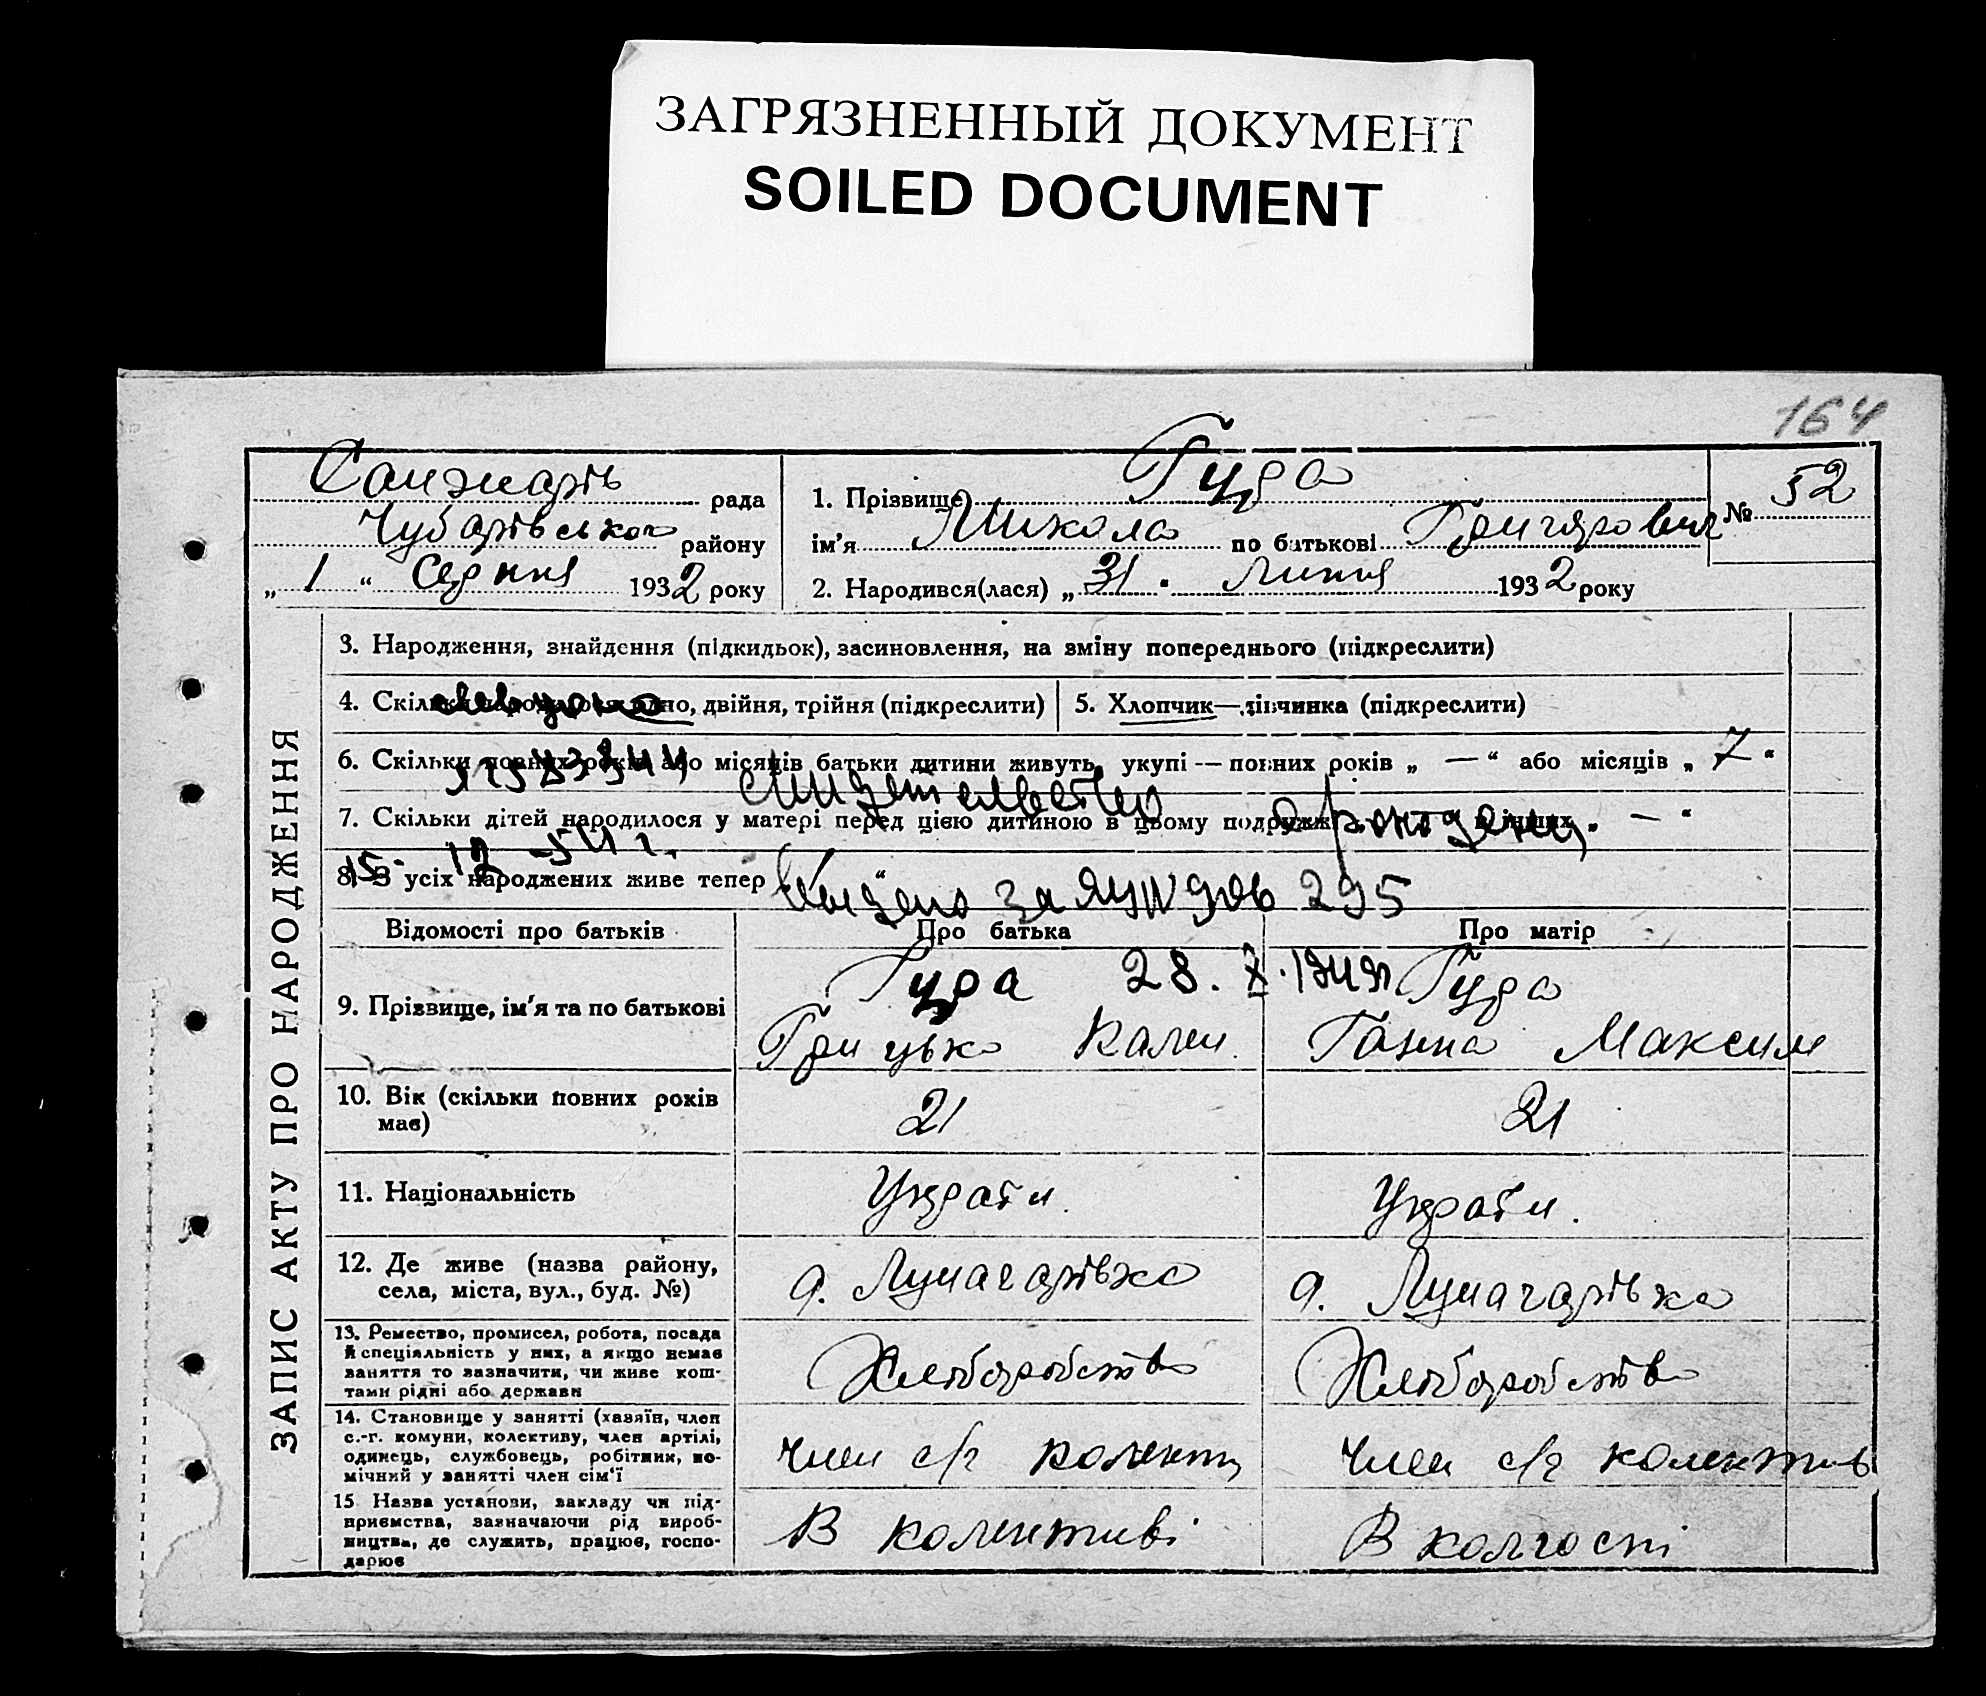 ЗАГРЯЗНЕННЫЙ ДОКУМЕНТ
SOILED DOCUMENT
164
Санжарів рада
Чубарівського району
„ 1 “ Серпня 1932 року
1. Прізвище Гура
ім’я Микола по батькові Григорович
2. Народився(лася) „ 31 “ Липня 1932 року
№ 52
ЗАПИС АКТУ ПРО НАРОДЖЕННЯ
3. Народження, знайдення (підкидьок), засиновлення, на зміну попереднього (підкреслити)
4. Скільки народилося: одно, двійня, трійня (підкреслити)
5. Хлопчик—дівчинка (підкреслити)
6. Скільки повних років або місяців батьки дитини живуть укупі — повних років „ — “ або місяців „ 7 “
свидетельство
7. Скільки дітей народилося у матері перед цією дитиною в цьому подружжі в інших „ — “
о рождении
15. 12 -54 г.
8. З усіх народжених живе тепер
Выдано за № 295
28. X. 194
Відомості про батьків
Про батька
Про матір
9. Прізвище, ім’я та по батькові
Гура
Грицько Кален.
Гура
Ганна Максим
10. Вік (скільки повних років має)
21
21
11. Національність
Україн.
Україн.
12. Де живе (назва району,
села, міста, вул., буд. №)
с. Луначарівка
с. Луначарівка
13. Ремество, промисел, робота, посада
й спеціяльність у них, а якщо немає
заняття то зазначити, чи живе кош-
тами рідні або держави
Хліборобство
Хліборобство
14. Становище у занятті (хазяїн, член
с.-г. комуни, колективу, член артілі,
одинець, службовець, робітник, по-
мічний у занятті член сім’ї
член с/г колект
член с/г колектив
15 Назва установи, закладу чи під-
приємства, зазначаючи рід вироб-
ництва, де служить, працює, госпо-
дарює
В колективі
В колгоспі